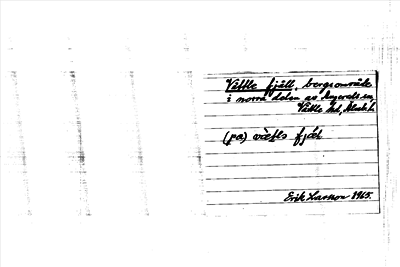 Vättle fjäll, bergsområde
i norra delen av Angereds sn,
Vättle hd, Älvsb. l.
(pa) vætls fjæl
Erik Larsson 1965.